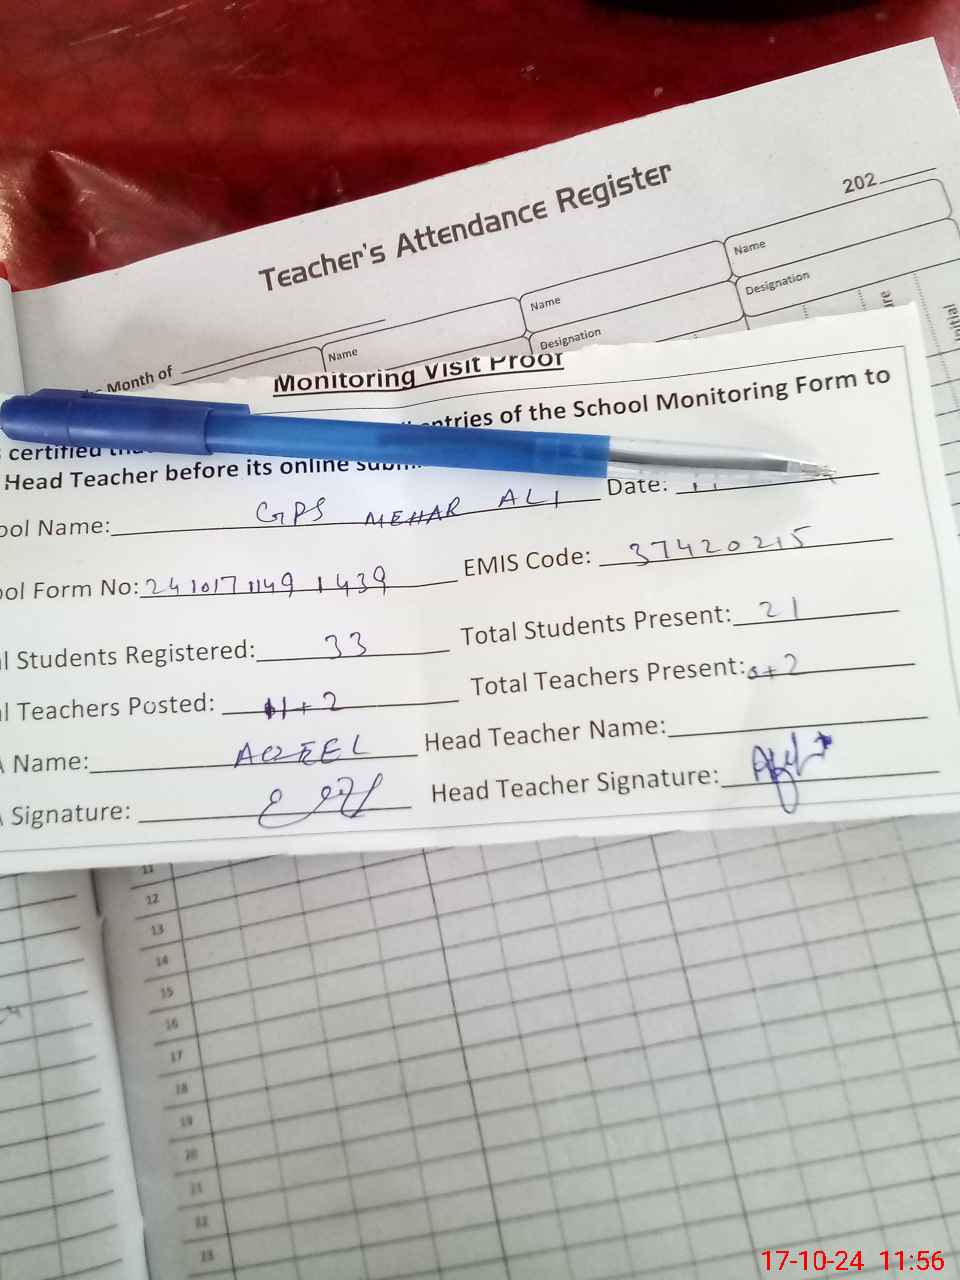 Teacher's Attendance Register
202
Month of
Name
Name
Name
Designation
Designation
Monitoring Visit Proof
certified
entries of the School Monitoring Form to
Head Teacher before its online
ool Name: GPS MEHAR ALI Date:
ool Form No: 241017 1149 1439 EMIS Code: 37420215
l Students Registered: 33 Total Students Present: 21
l Teachers Posted: 1+2 Total Teachers Present: 0+2
A Name: AQEEL Head Teacher Name:
A Signature: Head Teacher Signature:
11
12
13
14
15
16
17
18
19
20
21
22
23
17-10-24 11:56